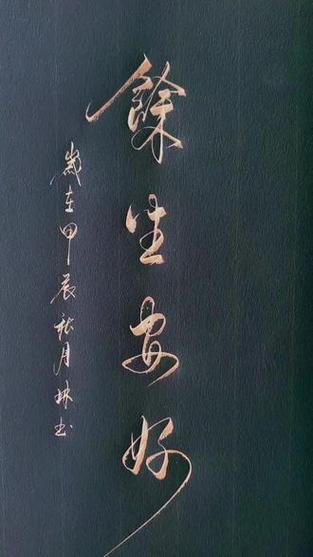 餘生安好
歲在甲辰秋月林书